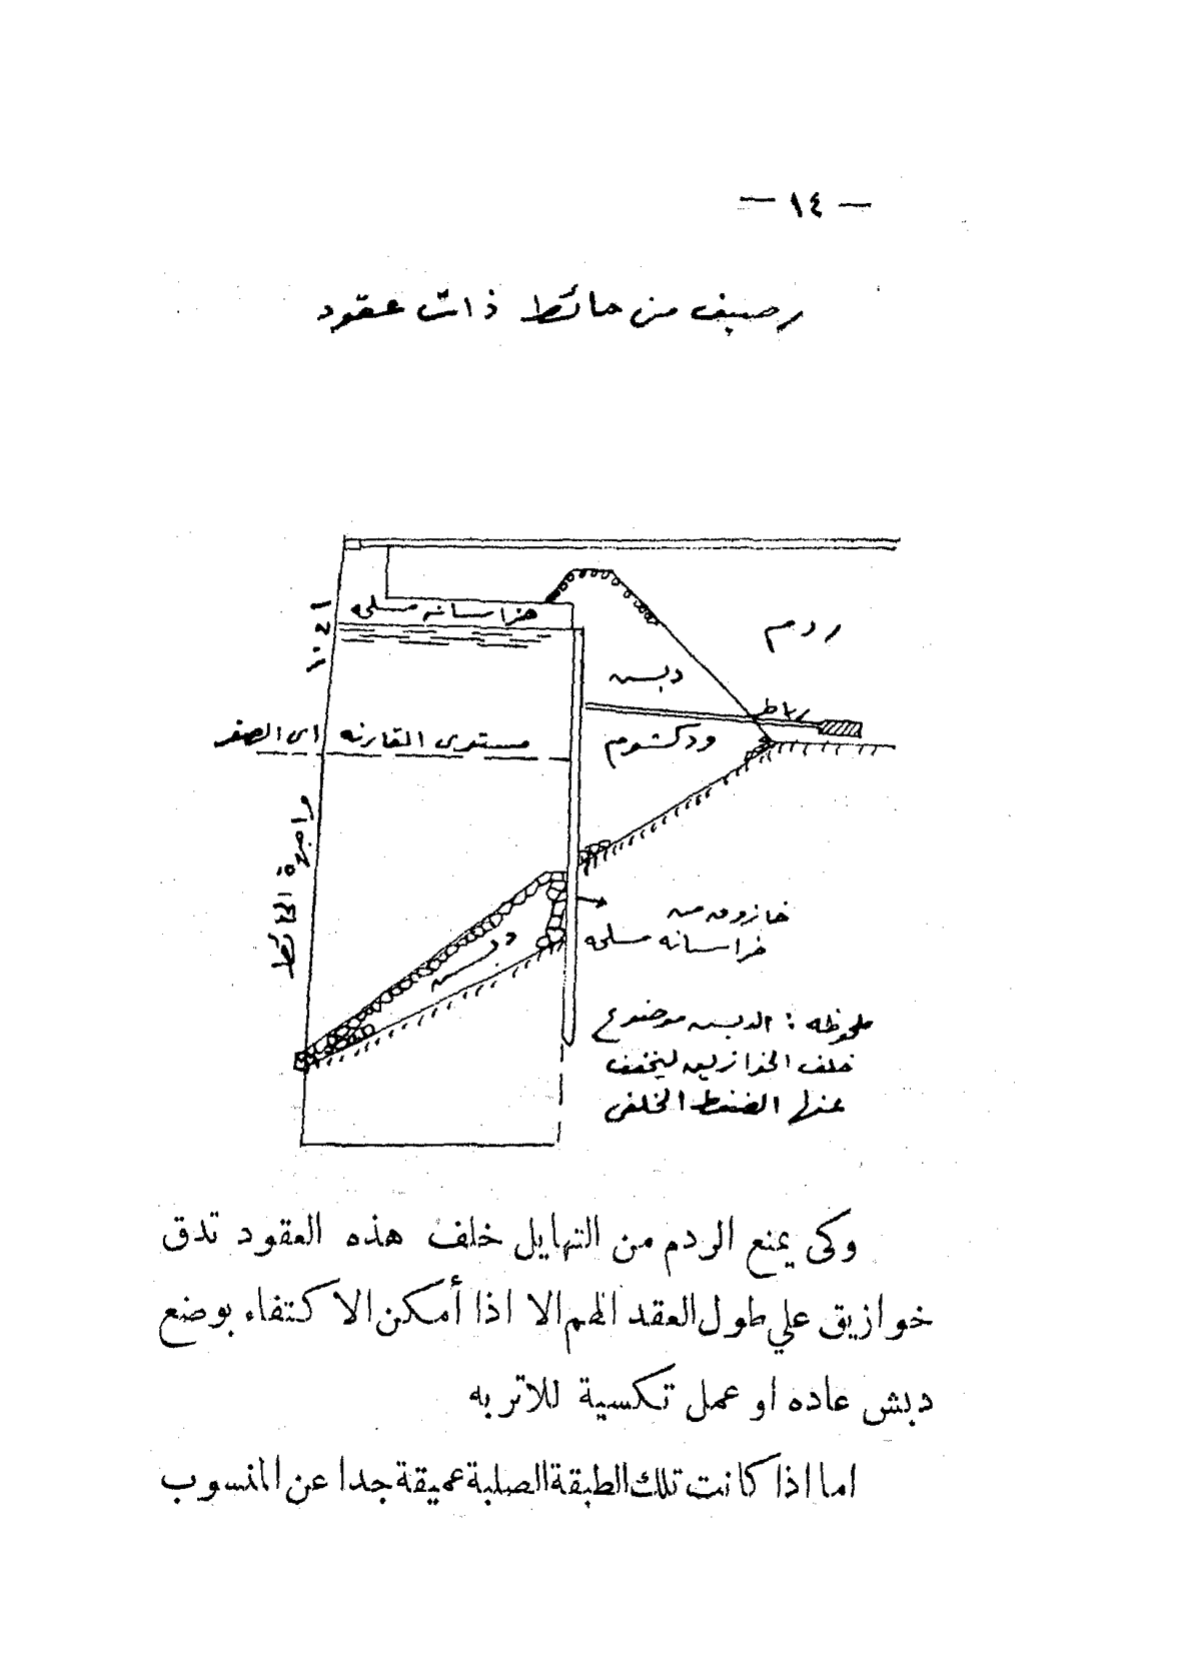 — ١٤ —
رصيف من حائط ذات عقود
خراسانه مسلحه
ردم
دبش
رباط
ودكشوم
مستوى المقارنه اى الصفر
واجهة الحائط
دبش
خازوق من
خراسانه مسلحه
ملحوظه : الدبش موضوع
خلف الخوازيق ليخفف
عنها الضغط الخلفى
وكى يمنع الردم من التهايل خلف هذه العقود تدق
خوازيق علي طول العقد الهم الا اذا أمكن الاكتفاء بوضع
دبش عاده او عمل تكسية للاتربه
اما اذا كانت تلك الطبقة الصلبة عميقة جدا عن المنسوب